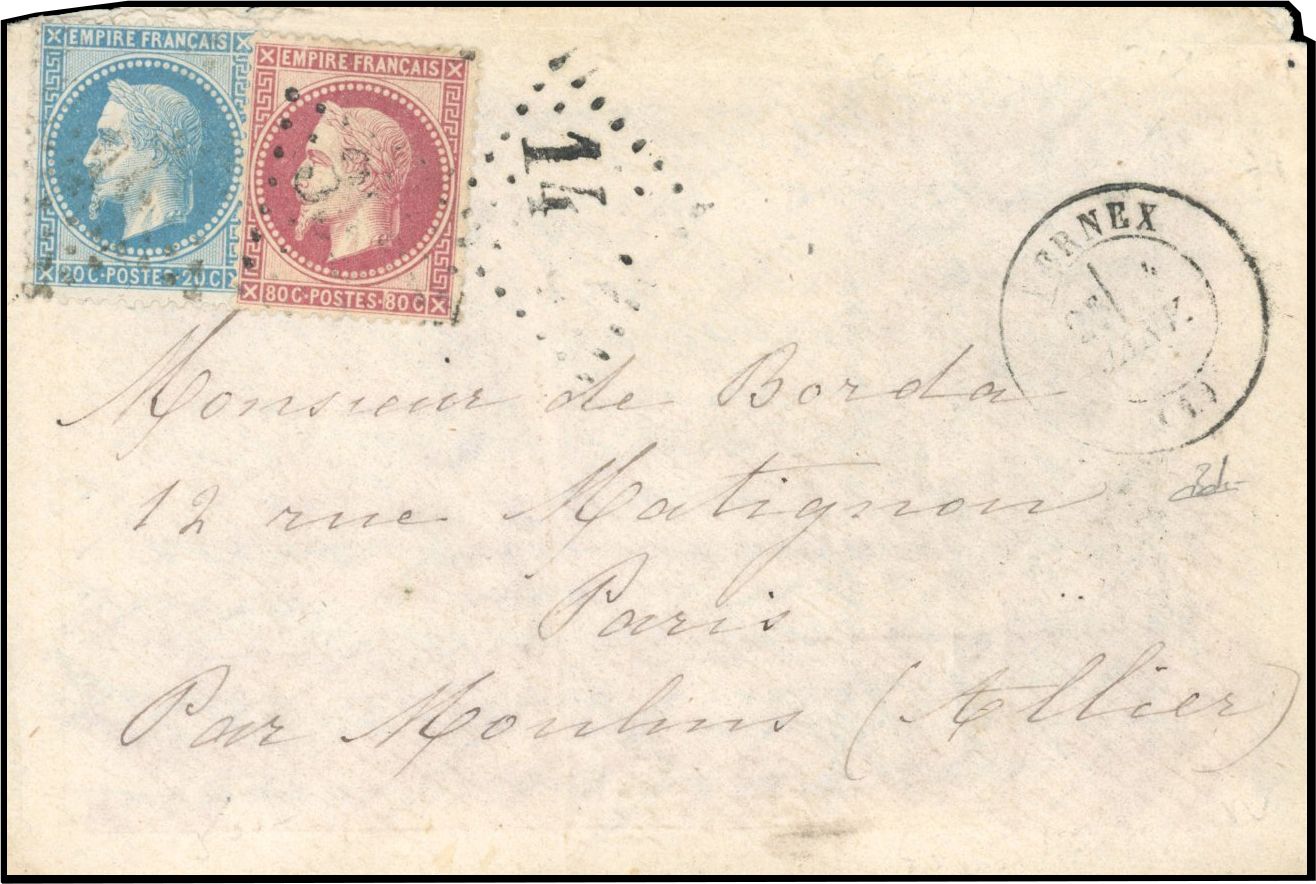 EMPIRE FRANÇAIS
20 C · POSTES · 20 C
EMPIRE FRANÇAIS
80 C · POSTES · 80 C
14
FERNEX
JANV.
Monsieur de Borda
12 rue Matignon
Paris
Par Moulins (Allier)